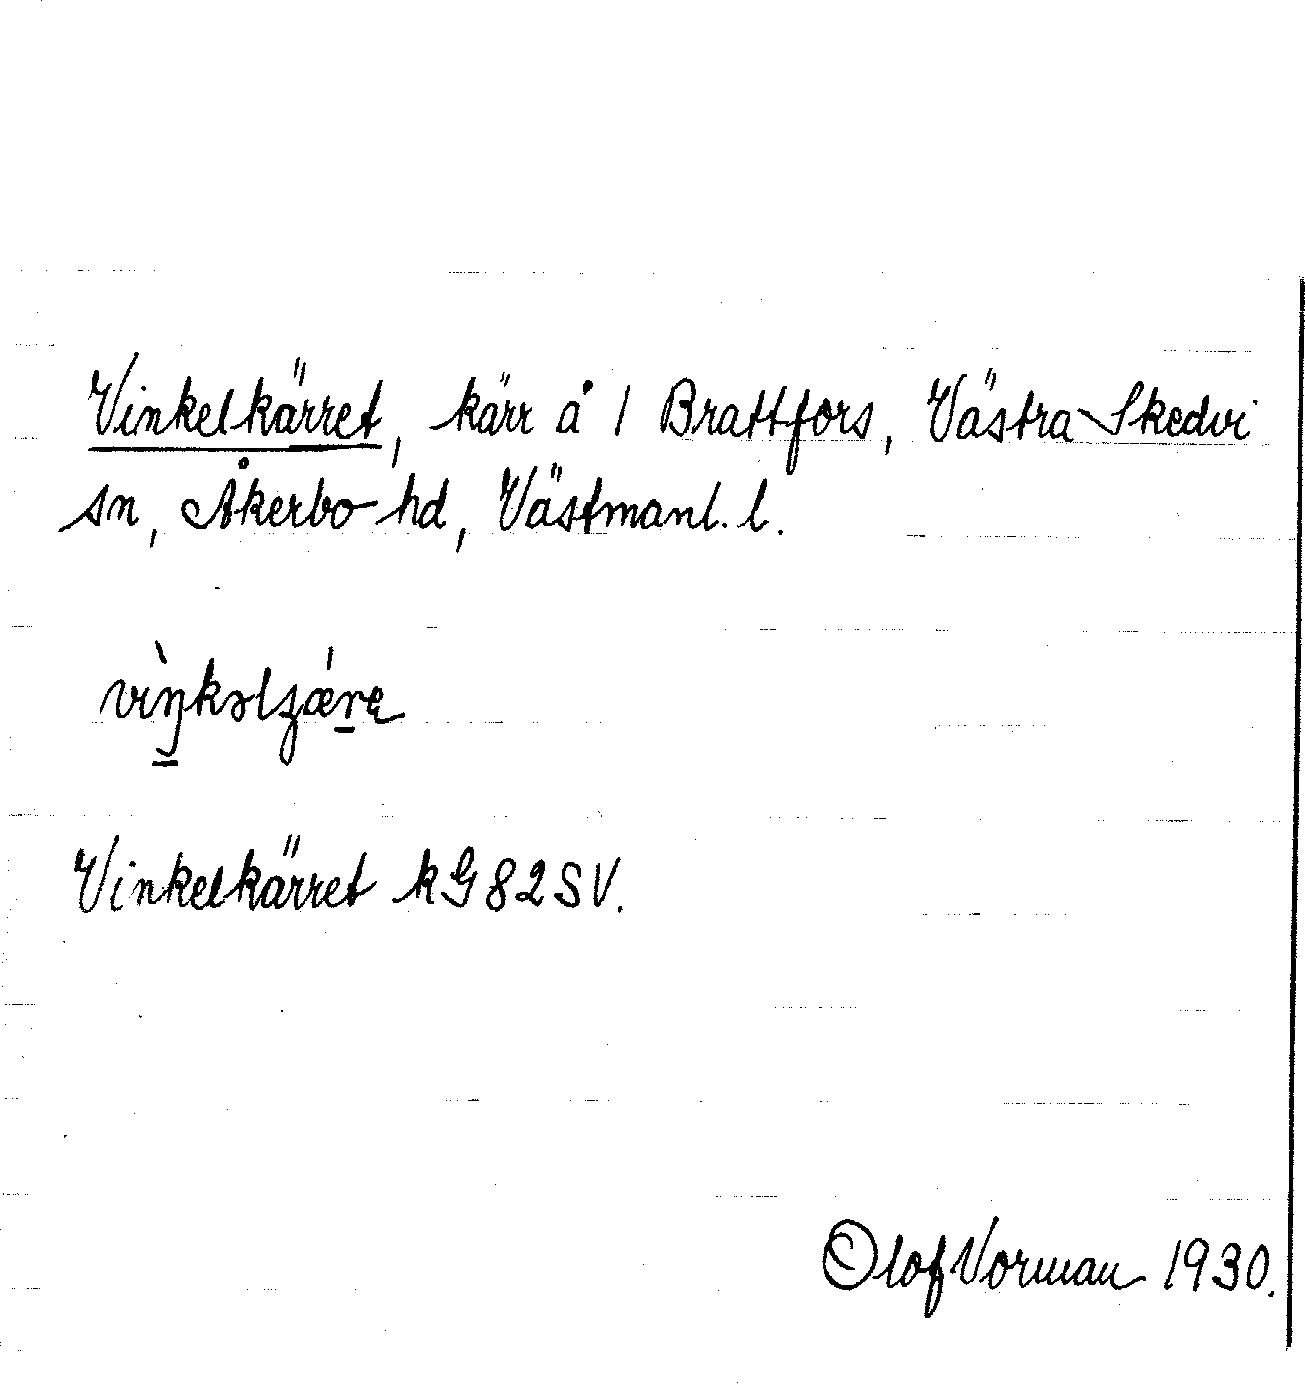 Vinkelkärret, kärr å 1 Brattfors, Västra Skedvi
sn, Åkerbo hd, Västmanl. l.
vìŋkəlʒǽrę
Vinkelkärret kG82SV.
Olof Vorman 1930.